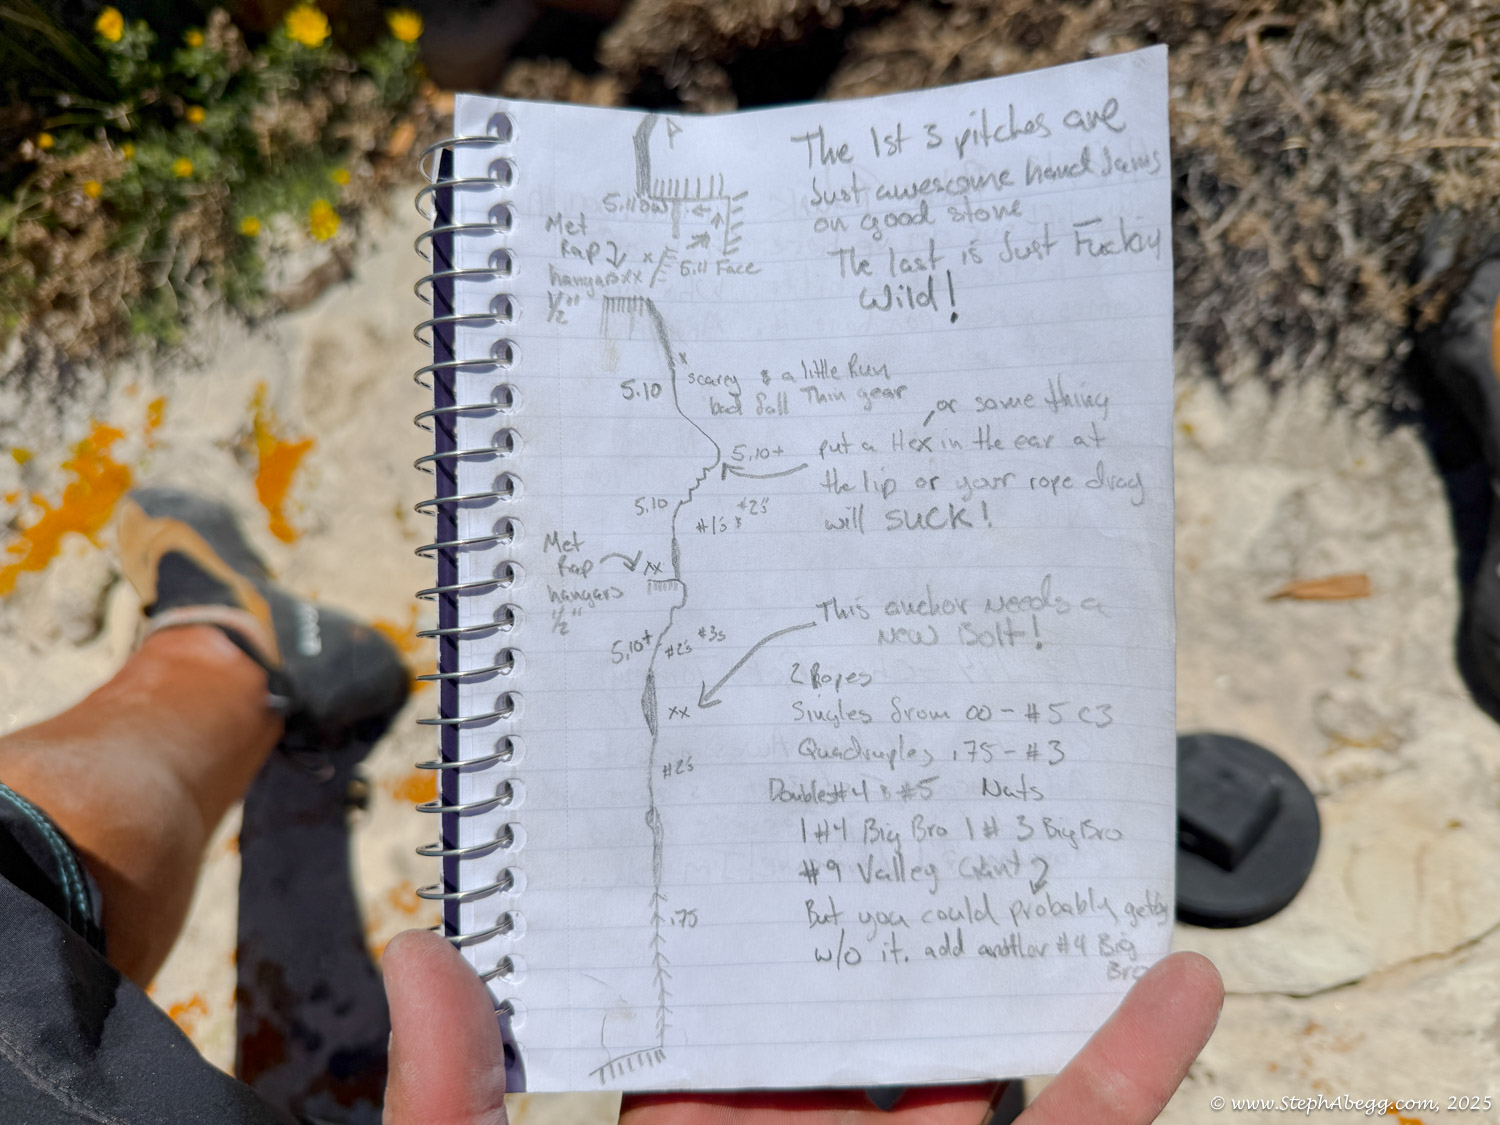 The 1st 3 pitches are
Just awesome hand Jams
on good stone
The last is Just Fuckin
Wild!
5.11 OW
Met
Rap
hangers xx
1/2"
x
5.11 Face
x
5.10
scarey & a little Run
bad fall Thin gear
, or some thing
5.10+
put a Hex in the ear at
the lip or your rope drag
will SUCK!
5.10
#1's & #2's
Met
Rap
hangers
1/2"
xx
5.10+
#2's #3s
This anchor Needs a
New Bolt!
xx
#2's
.75
2 Ropes
Singles from 00 - #5 C3
Quadruples .75 - #3
Doubles #4 & #5 Nuts
1 #4 Big Bro 1 # 3 Big Bro
#9 Valley Giant
But you could probably getby
w/o it. add another #4 Big
Bro
© www.StephAbegg.com, 2025